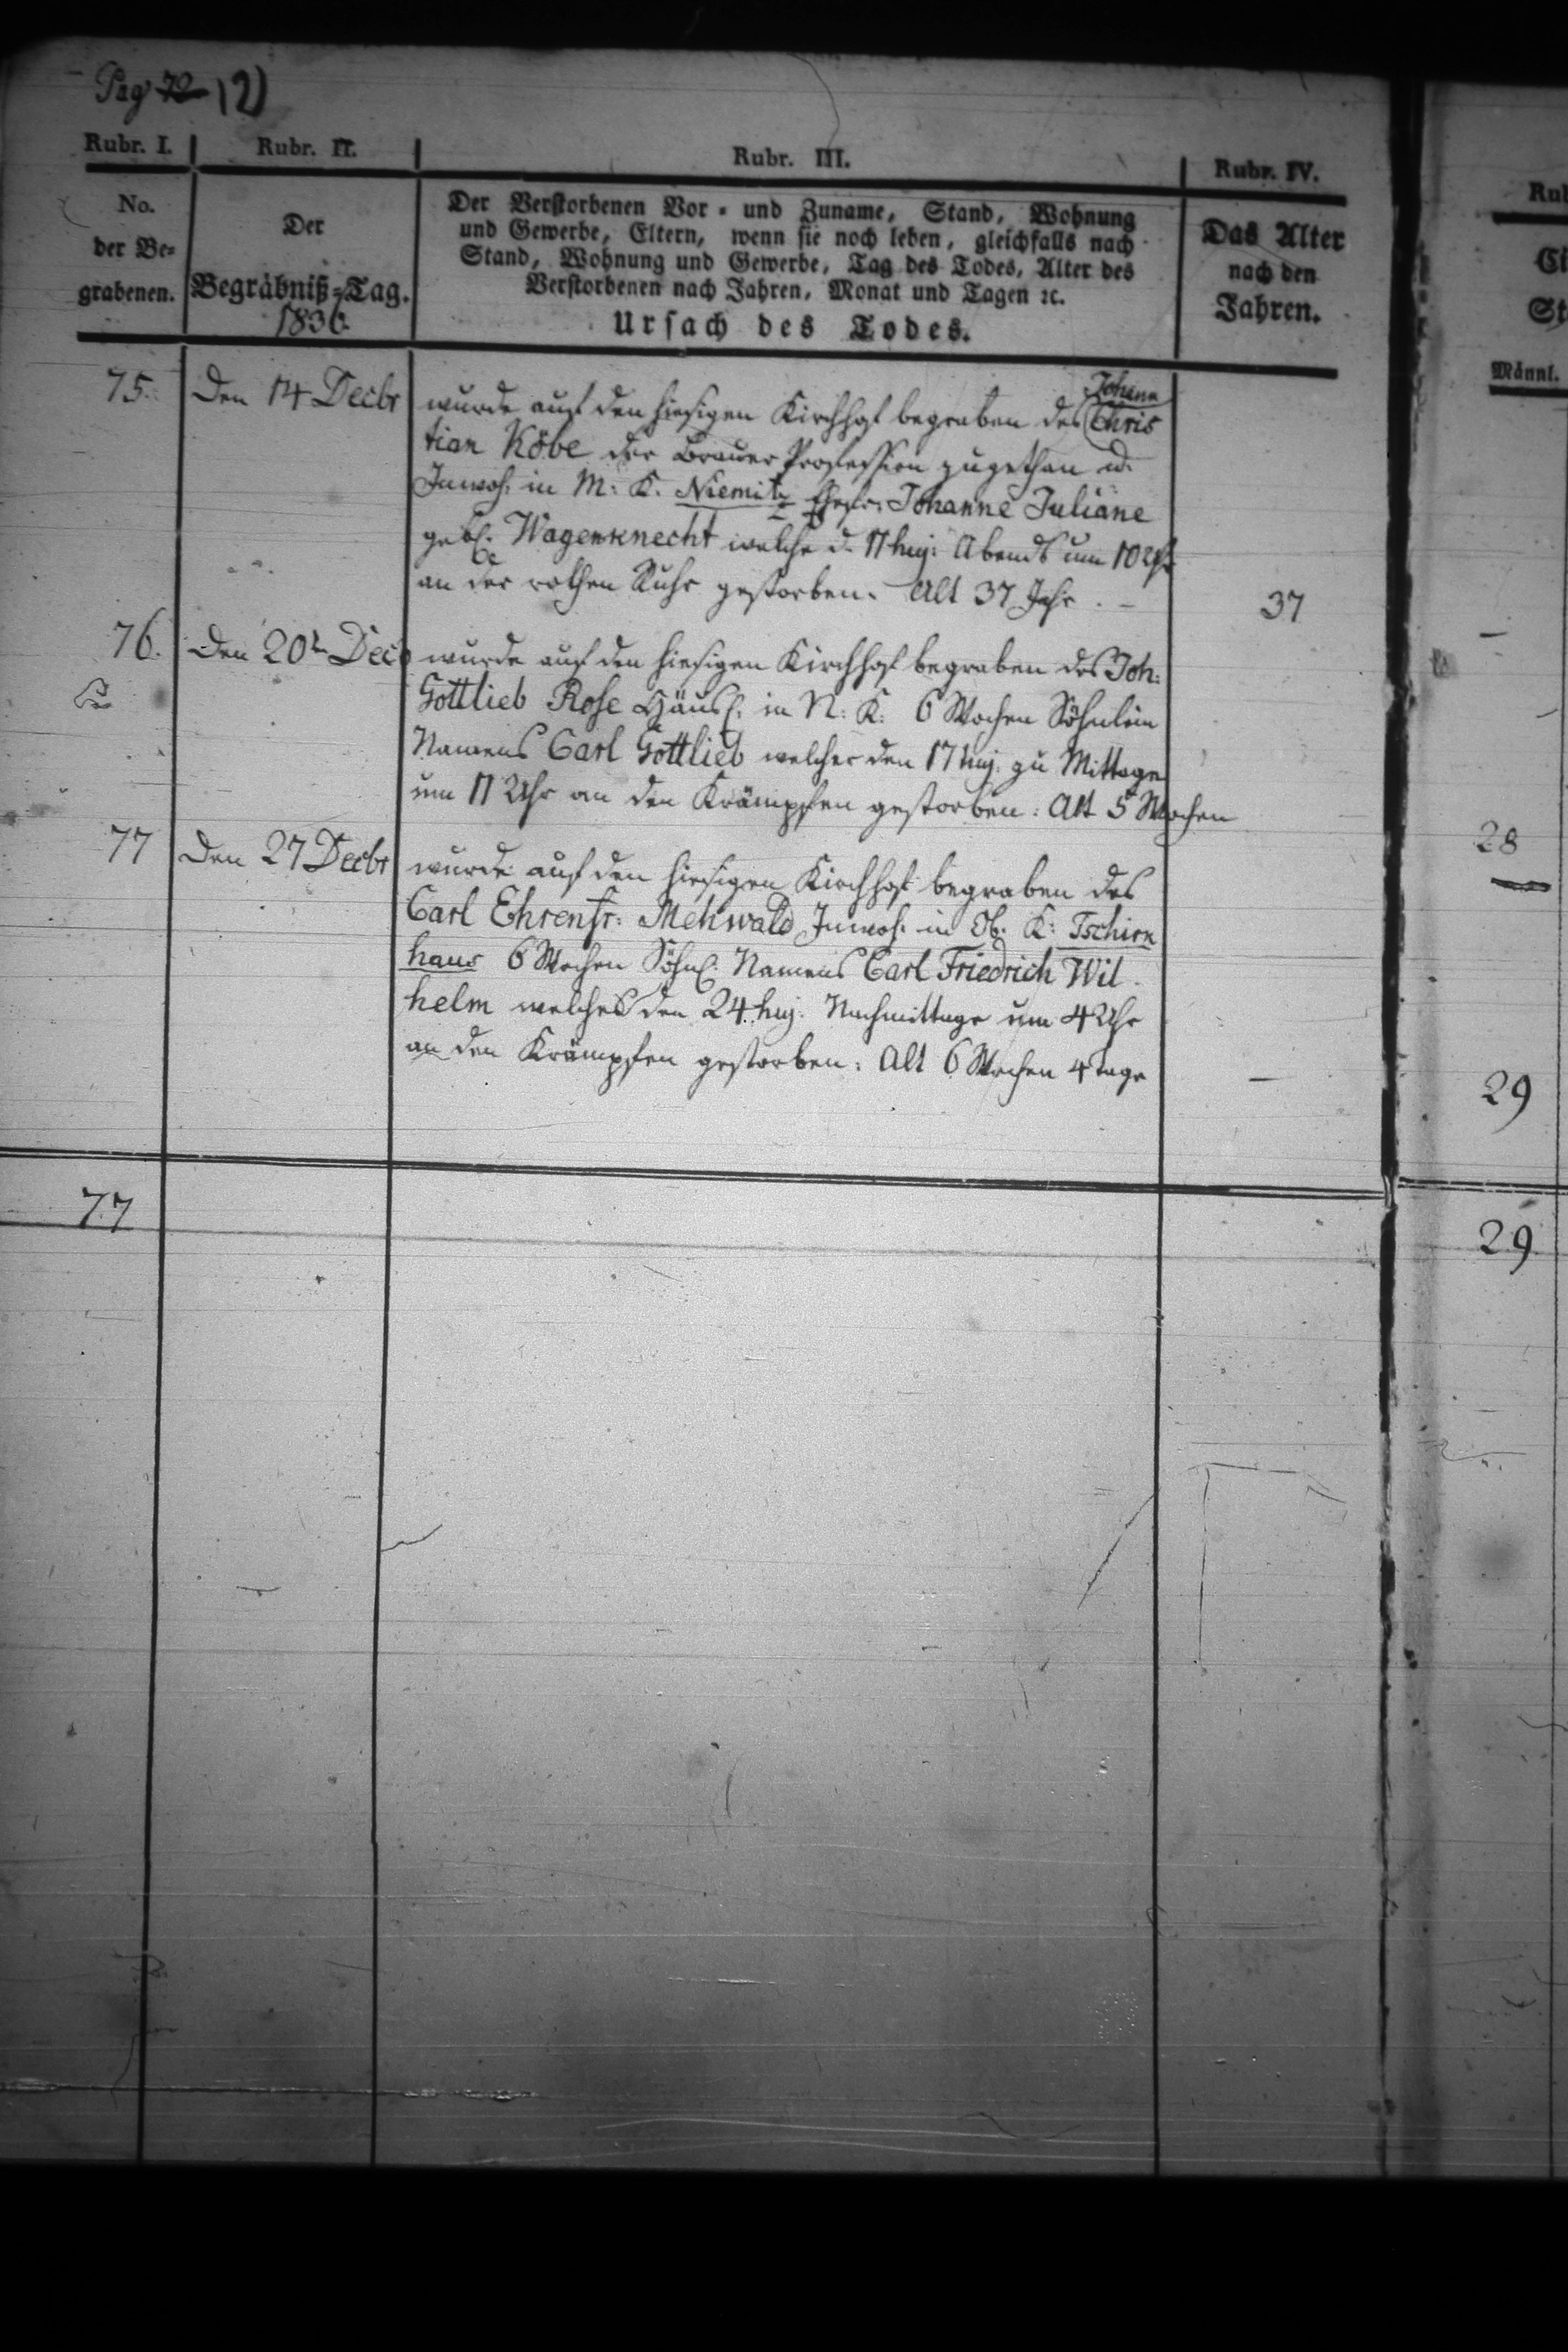 Pag 72 12)
Rubr. I. Rubr. II. Rubr. III. Rubr. IV.
No.
der Be-
grabenen.
Der
Begräbniß-Tag.
1836.
Der Verstorbenen Vor- und Zuname, Stand, Wohnung
und Gewerbe, Eltern, wenn sie noch leben, gleichfalls nach
Stand, Wohnung und Gewerbe, Tag des Todes, Alter des
Verstorbenen nach Jahren, Monat und Tagen ꝛc.
Ursach des Todes.
Das Alter
nach den
Jahren.
Männl.
75. Den 14 Decbr
Johann
wurde auf den hiesigen Kirchhof begraben des Chris
tian Köbe der Brauer Profession zugethan u.
Inwoh. in M: K. Niemitz Ehefr: Johanne Juliane
geb. Wagenknecht welche d. 11 huj: Abends um 10 Uhr
an der rothen Ruhr gestorben. Alt 37 Jahr. –
37
76. Den 20ten Dec
wurde auf den hiesigen Kirchhof begraben des Joh:
Gottlieb Rose Häusl. in N: K: 6 Wochen Söhnlein
Namens Carl Gottlieb welcher den 17 huj. zu Mittage
um 11 Uhr an den Krämpfen gestorben: Alt 5 Wochen
28
77 Den 27 Decbr
wurde auf den hiesigen Kirchhof begraben des
Carl Ehrenfr: Mehwald Inwoh. in Ob. K: Tschirn
haus 6 Wochen Söhnl. Namens Carl Friedrich Wil-
helm welches den 24 huj. Nachmittage um 4 Uhr
an den Krämpfen gestorben: Alt 6 Wochen 4 Tage
–
29
77
29